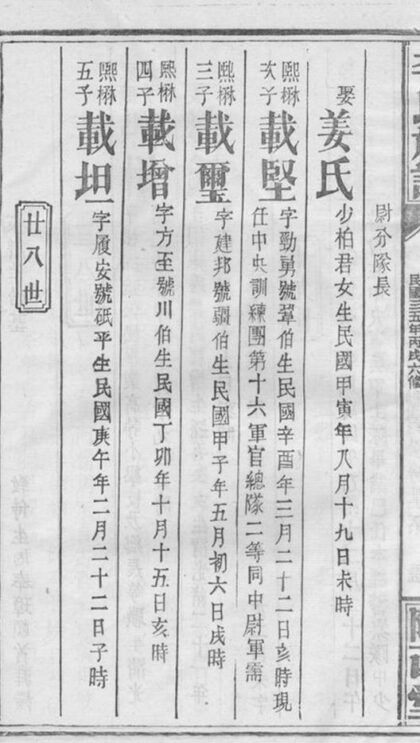 尉分隊長
娶姜氏少柏君女生民國甲寅年八月十九日未時
熙楙次子載堅字勁勇號犟伯生民國辛酉年三月二十二日亥時現
任中央訓練團第十六軍官總隊二等同中尉軍需
熙楙三子載璽字建邦號疆伯生民國甲子年五月初六日戌時
熙楙四子載增字方至號川伯生民國丁卯年十月十五日亥時
熙楙五子載坦字履安號砥平生民國庚午年二月二十二日子時
廿八世
民國三五年丙戌六修